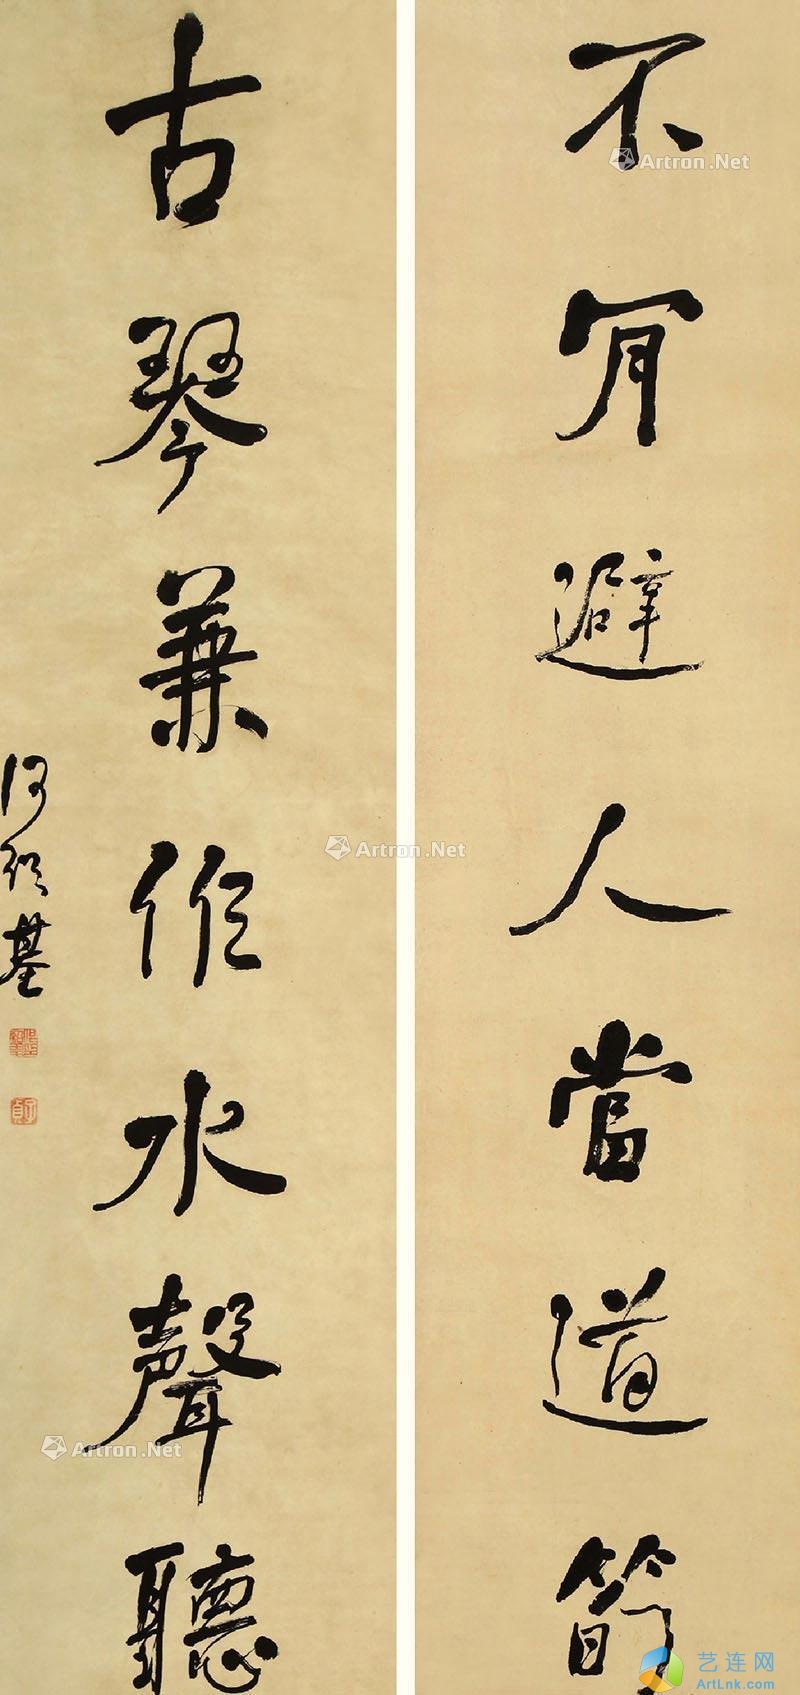 不肎避人當道筍
古琴兼作水聲聽
何紹基
子貞
Artron.Net
Artron.Net
Artron.Net
Artron.Net
艺连网
ArtLnk.com